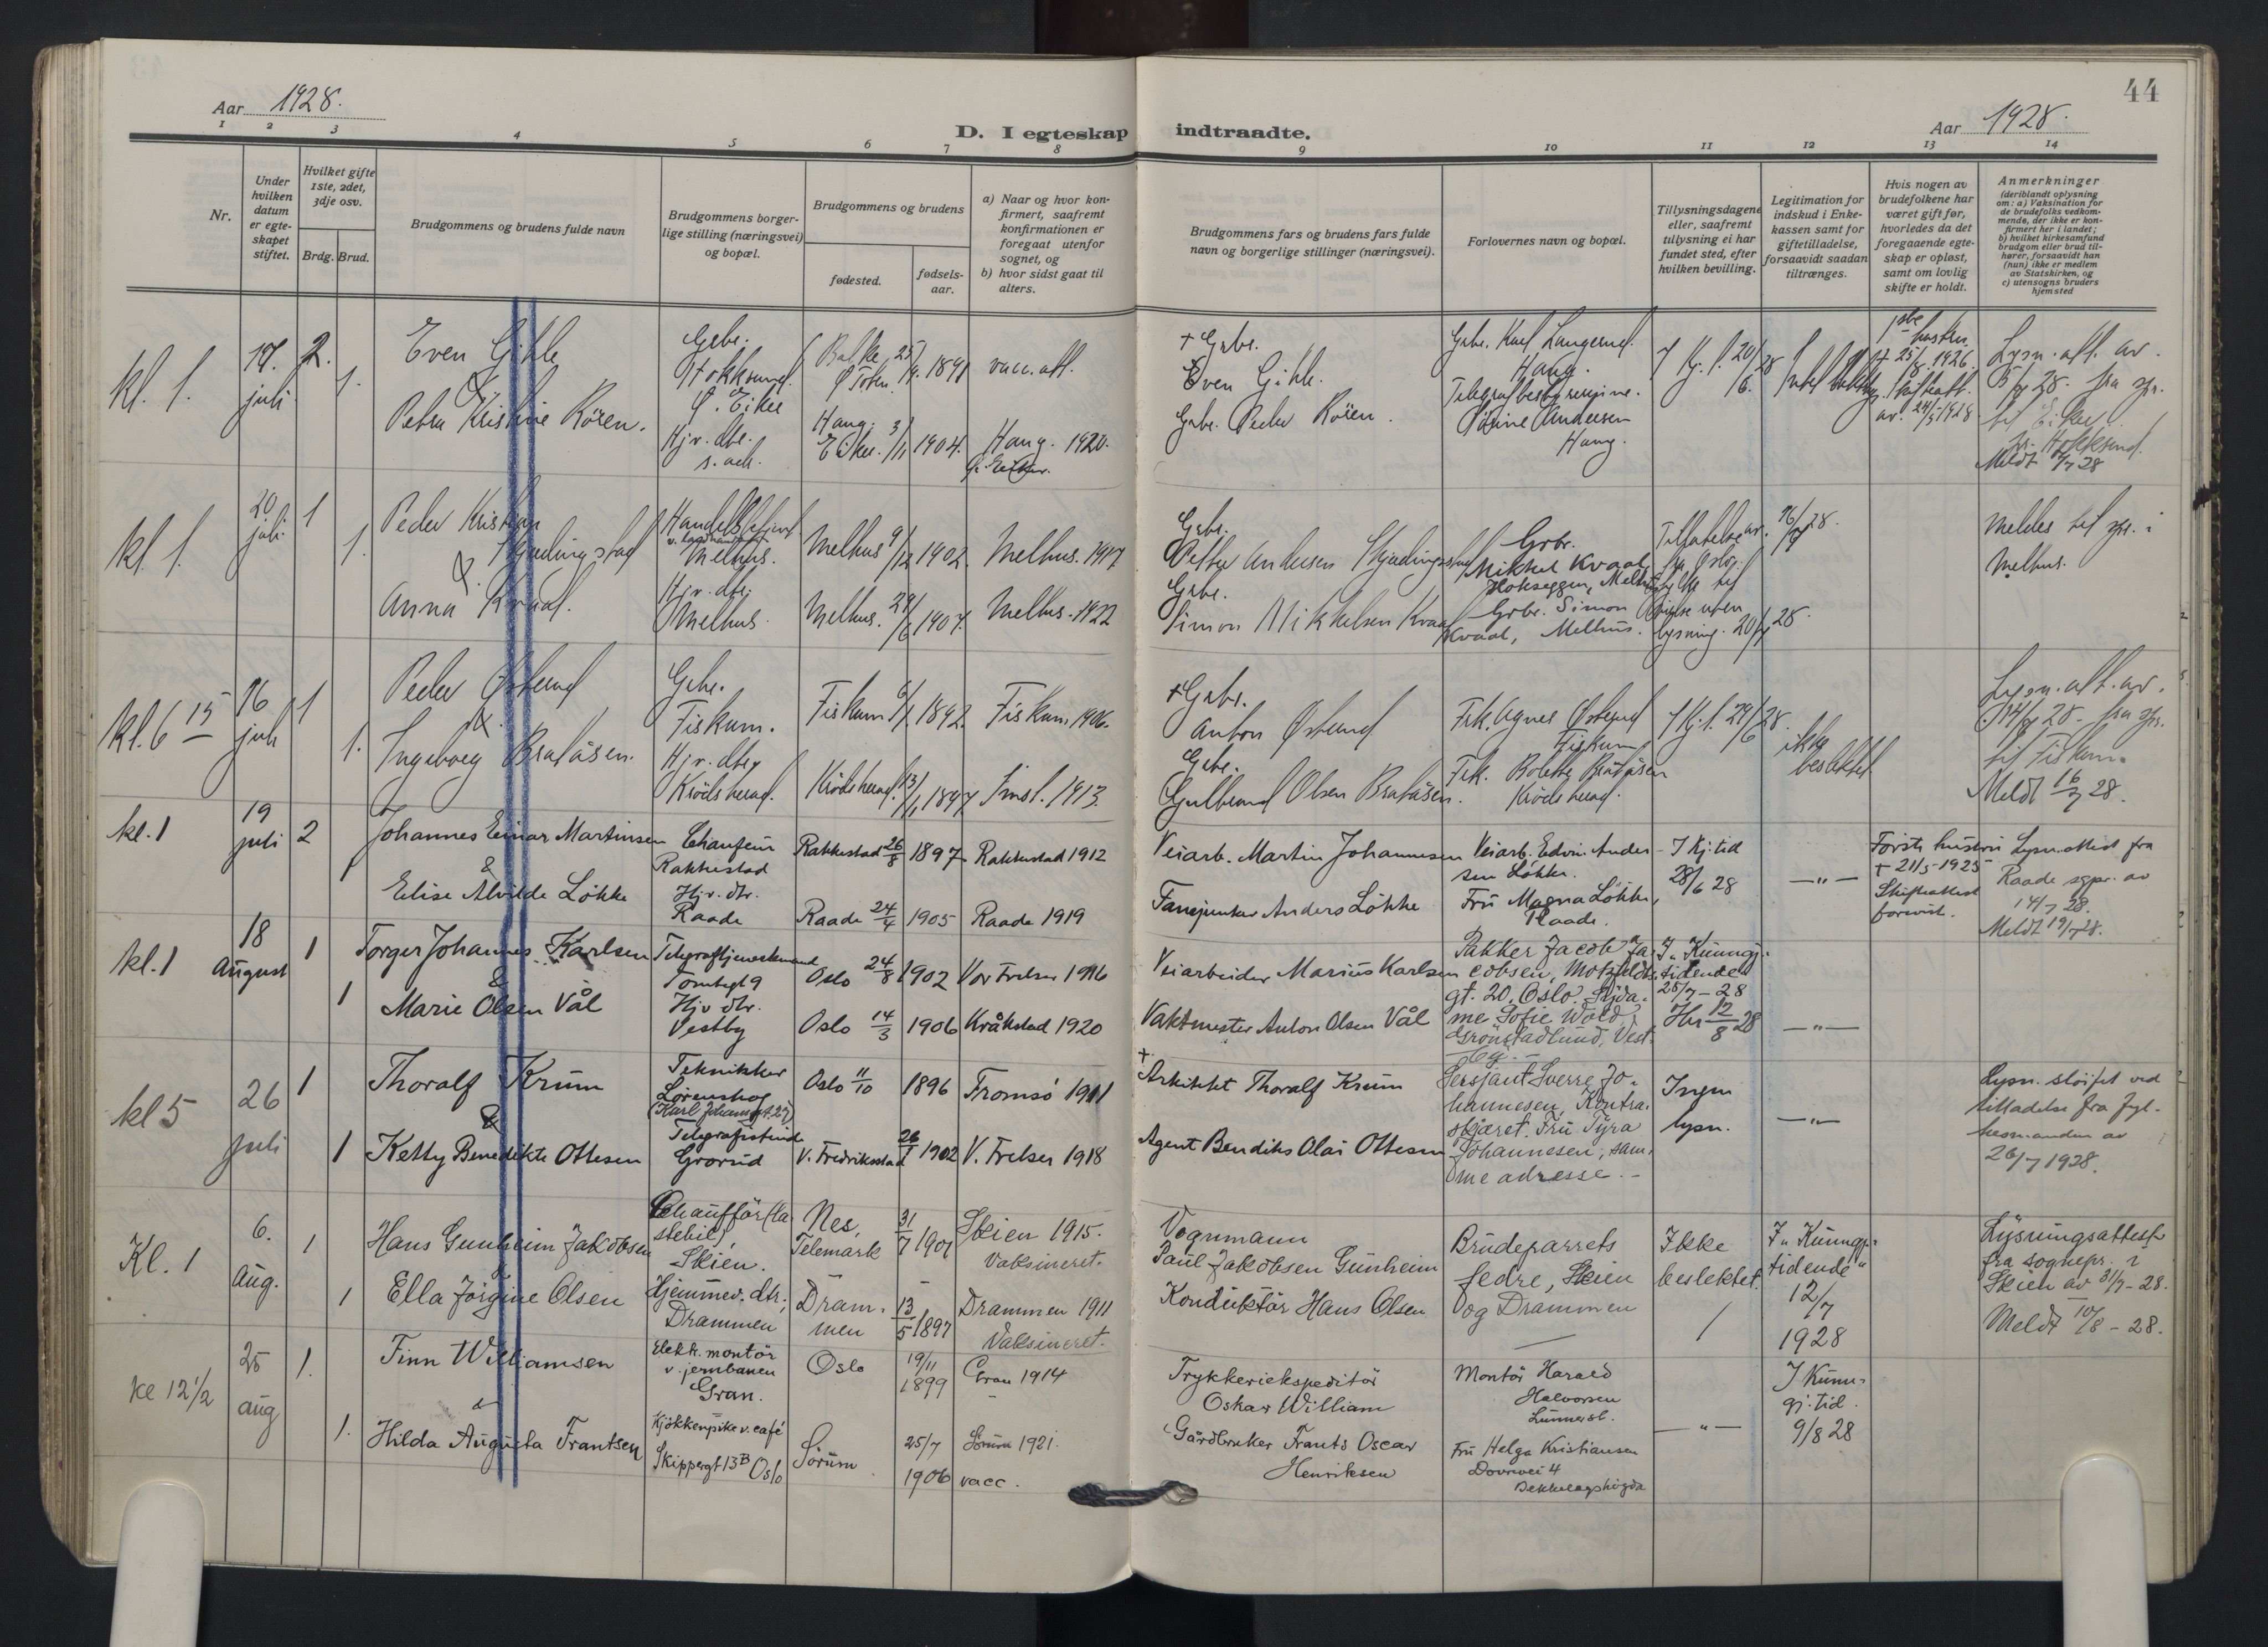 44
Aar 1928.
D. I egteskap indtraadte.
Aar 1928.
1 2 3 4 5 6 7 8 9 10 11 12 13 14
Nr.
Under
hvilken
datum
er egte-
skapet
stiftet.
Hvilket gifte
1ste, 2det,
3dje osv.
Brdg. Brud.
Brudgommens og brudens fulde navn
Brudgommens borger-
lige stilling (næringsvei)
og bopæl.
Brudgommens og brudens
fødested.
fødsels-
aar.
a) Naar og hvor kon-
firmert, saafremt
konfirmationen er
foregaat utenfor
sognet, og
b) hvor sidst gaat til
alters.
Brudgommens fars og brudens fars fulde
navn og borgerlige stillinger (næringsvei).
Forlovernes navn og bopæl.
Tillysningsdagene
eller, saafremt
tillysning ei har
fundet sted, efter
hvilken bevilling.
Legitimation for
indskud i Enke-
kassen samt for
giftetilladelse,
forsaavidt saadan
tiltrænges.
Hvis nogen av
brudefolkene har
været gift før,
hvorledes da det
foregaaende egte-
skap er opløst,
samt om lovlig
skifte er holdt.
Anmerkninger
(deriblandt oplysning
om: a) Vaksination for
de brudefolks vedkom-
mende, der ikke er kon-
firmert her i landet;
b) hvilket kirkesamfund
brudgom eller brud til-
hører, forsaavidt han
(hun) ikke er medlem
av Statskirken, og
c) utensogns bruders
hjemsted
kl. 1.
17.
juli
2.
1.
Even Gihle
&
Petra Kristine Kören.
Gbr.
Hokksund
Ø. Eiker
Hj.v. dtr.
Balke, 25/
Ø Toten 1891
Haug. 3/
Eiker. 11 1904.
vacc. att.
Haug. 1920.
+ Gbr.
Even Gihle.
Gbr. Peder Kören.
Gbr. Karl Langerud.
Haug.
Telegrafbestyrerinne.
Andersen
Haug.
1ste hustru
+ 25/8. 1926.
Skifteatt.
Lysn. att. av.
fra spr.
til Eiker
Hokksund.
Meldt 17/7 28
kl. 1.
20
juli
1
1.
Peder Kristian
Skjerdingstad
&
Anna Kvaal.
Melhus.
Hj.v. dtr.
Melhus.
Melhus 9/12 1902.
Melhus. 29/6 1904.
Melhus. 1917
Melhus. 1922
Gbr.
Petter Andersen Skjerdingstad
Gbr.
Simon Mikkelsen Kvaal
Grbr.
Mikkel Kvaal
Melhus
Grbr. Simon
Kvaal, Melhus.
Tilladelse av. 16/7 28.
lysning. 20/7 28.
Meldes til spr. i
Melhus.
kl. 6 15
16
juli
1
1.
Peder Østerud
&
Ingeborg Bratåsen.
Gbr.
Fiskum.
Hj.v. dtr.
Krödsherad.
Fiskum 1892.
Krödsherad. 13/1 1897
Fiskum 1906.
1913.
+ Gbr.
Anton Østerud
Gbr.
Gulbrand Olsen Bratåsen.
Frk. Agnes Østerud
Fiskum
Frk. Bratåsen
Krödsherad.
29/6 28.
ikke
beslektet
Lysn. att. av.
14/7 28. fra spr.
til Fiskum.
Meldt 16/7 28.
kl. 1
19
juli
2
1
Johannes Einar Martinsen
&
Elise Alvilde Lökke
Chaufeur
Rakkestad
Hj.v. dtr.
Raade
Rakkestad 26/8 1897
Raade 24/4 1905
Rakkestad 1912
Raade 1919
Veiarb. Martin Johannesen
Anders Lökke
Veiarb. Edvin Ander-
sen Løkke.
Fru Magna Lökke,
Raade.
I Kj. tid
28/6 28
— " —
Første hustru
+ 21/5-1925
Skifteattest
forevist.
Lysn. attest fra
Raade sgpr. av
14/7 28.
Meldt 19/7 28.
kl. 1
18
August
1
1
Torger Johannes Karlsen
&
Marie Olsen Vål
Tomtegt 9
Hjv dtr.
Vestby
Oslo 24/8 1902
Oslo 14/3 1906
Vor Frelser 1916
Kråkstad 1920
Veiarbeider Marius Karlsen
Vaktmester Anton Olsen Vål
Pakker Jacob Ja-
cobsen, Motzfeldts-
gt. 20, Oslo.
me Sofie Wold
Vest-
by. —
I "Kunngj.-
tidende"
25/7 - 28
12/8 28
— " —
kl 5
26
juli
1
1
Thoralf Krum
&
Ketty Benedikte Ottesen
Teknikker
Lørenskog
(Karl Johansgt. 27)
Telegrafistinde
Grorud
Oslo 11/10 1896
V. Fredrikstad 1902
Tromsö 1911
V. Frelser 1918
+
Arkitekt Thoralf Krum
Agent Bendiks Olai Ottesen
Sersjant Sverre Jo-
hannesen, Kontra-
skjæret. Fru Tyra
Johannesen, sam-
me adresse. -
Ingen
lysn.
— " —
Lysn. sløifet ved
tilladelse fra fyl-
kesmanden av
26/7 1928.
Kl. 1
6.
Aug.
1
1
Hans Gunheim Jakobsen
&
Ella Jörgine Olsen
Chaufför (la-
stebil),
Skien.
Hjemmev. dtr.,
Drammen
Nes,
Telemark
31/7 1901
Dram-
men
13/5 1897
Skien 1915.
Vaksineret.
Drammen 1911
Vaksineret.
Vognmann
Paul Jakobsen Gunheim
Konduktör Hans Olsen
Brudeparrets
fedre, Skien
og Drammen
Ikke
beslektet.
I "Kunngj.-
tidende"
12/7
1928
Lysningsattest
fra sognepr. i
Skien av 31/7 - 28.
Meldt 10/8 - 28.
kl 12 1/2
25
aug
1.
1.
Finn Williamsen
&
Hilda Augusta Frantsen
Elekt. montör
v. jernbanen
Gran.
Kjökkenpike v. café
Skippergt 13 B Oslo
Oslo
Sörum
19/11
1899
25/7
1906
Gran 1914
Sörum 1921.
vacc.
Trykkeriekspeditör
Oskar William
Gårdbruker Frants Oscar
Henriksen
Montör Harald
Halvorsen
Lunner st.
Fru Helga Kristiansen
Dovrevei 4
Bekkelagshögda
— " —
I Kunn-
gj. tid.
9/8 28